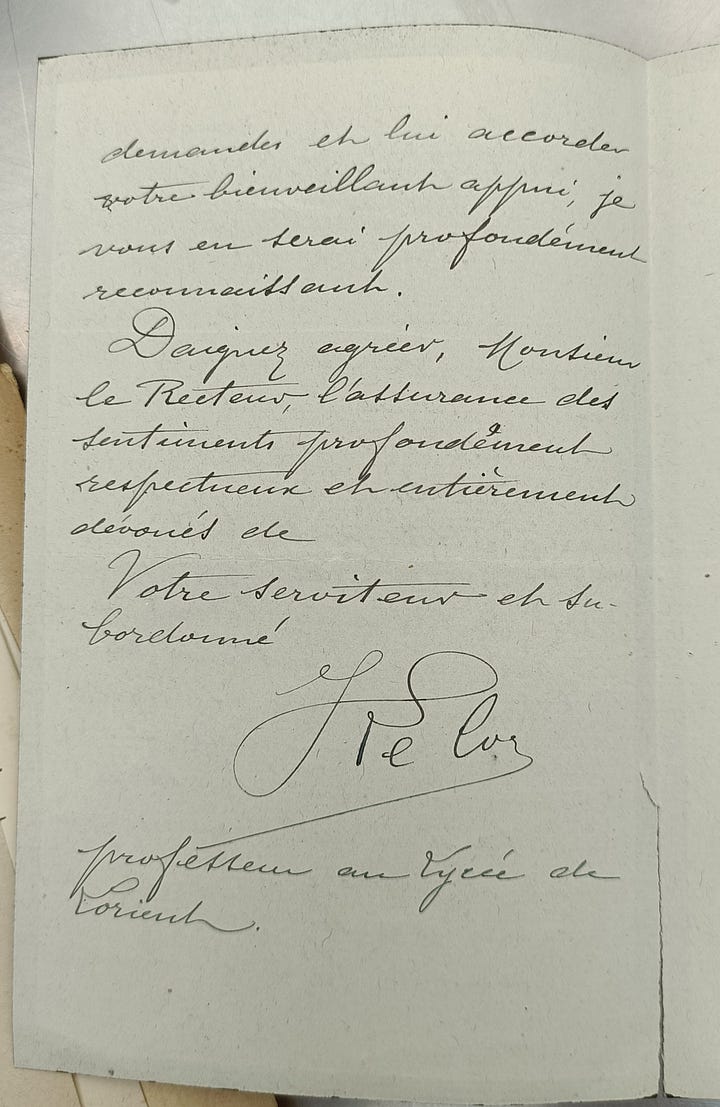 demandes et lui accorder
votre bienveillant appui, je
vous en serai profondément
reconnaissant.
Daignez agréer, Monsieur
le Recteur, l'assurance des
sentiments profondément
respectueux et entièrement
dévoués de
Votre serviteur et su-
bordonné
professeur au Lycée de
Lorient.